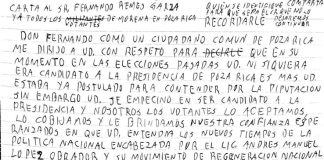 CARTA AL SR. FERNANDO REMES GARZA
Y A TODOS LOS MILITANTES DE MORENA EN POZA RICA
VOTANTES
QUIEN SE IDENTIFIQUE COMPARTA
RECORDARLE
DON FERNANDO COMO UN CIUDADANO COMUN DE POZA RICA
ME DIRIJO A UD. CON RESPETO PARA DECIRLE QUE EN SU
MOMENTO EN LAS ELECCIONES PASADAS UD. NI SIQUIERA
ERA CANDIDATO A LA PRESIDENCIA DE POZA RICA ES MAS UD.
ESTABA YA POSTULADO PARA CONTENDER POR LA DIPUTACION
SIN EMBARGO UD. SE EMPECINO EN SER CANDIDATO A LA
PRESIDENCIA Y NOSOTROS LOS VOTANTES LO ACEPTAMOS,
LO COBIJAMOS Y LE BRINDAMOS NUESTRA CONFIANZA ESPE
RANZADOS EN QUE UD. ENTENDIA LOS NUEVOS TIEMPOS DE LA
POLITICA NACIONAL ENCABEZADA POR EL LIC ANDRES MANUEL
LOPEZ OBRADOR Y SU MOVIMIENTO DE REGENERACION NACIONAL